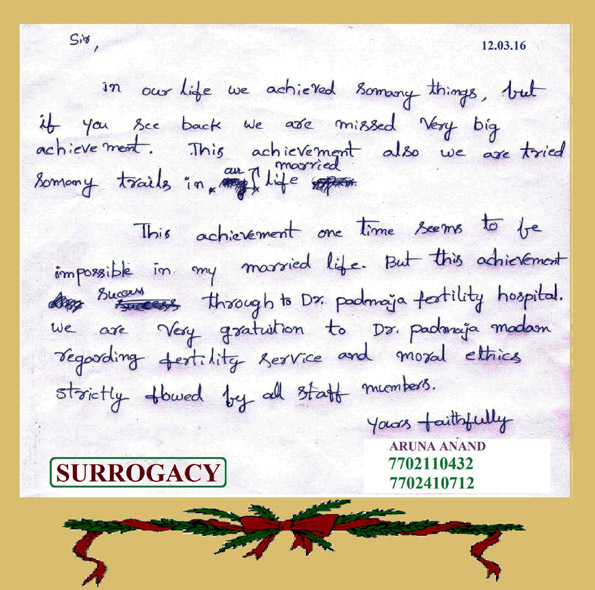 Sir,
12.03.16
In our life we achieved somany things, but
if you see back we are missed very big
achievement. This achievement also we are tried
somany trails in our married life
This achievement one time seems to be
impossible in my married life. But this achievement
success through to Dr. padmaja fertility hospital.
we are very gratution to Dr. padmaja madam
regarding fertility service and moral ethics
strictly flowed by all staff members.
yours faithfully
ARUNA ANAND
7702110432
7702410712
SURROGACY